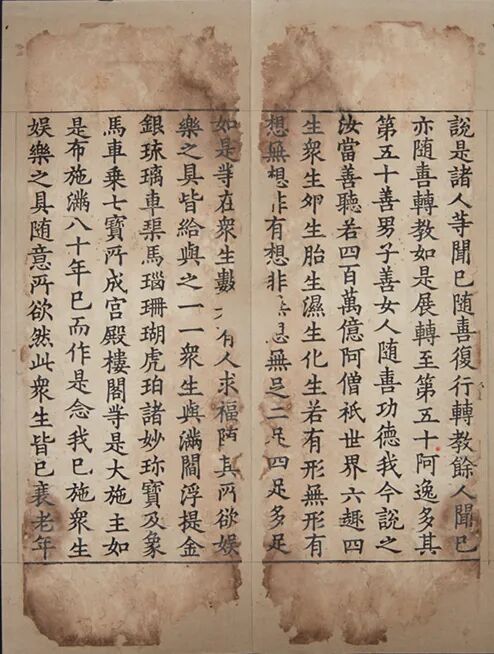 說是諸人等聞已隨喜復行轉教餘人聞已
亦隨喜轉教如是展轉至第五十阿逸多其
第五十善男子善女人隨喜功德我今說之
汝當善聽若四百萬億阿僧祇世界六趣四
生衆生卵生胎生濕生化生若有形無形有
想無想非有想非想無足二足四足多足
如是等在衆生數有人求福隨其所欲娛
樂之具皆給與之一一衆生與滿閻浮提金
銀琉璃車𤦲馬瑙珊瑚虎珀諸妙珎寶及象
馬車乘七寶所成宮殿樓閣等是大施主如
是布施滿八十年已而作是念我已施衆生
娛樂之具隨意所欲然此衆生皆已衰老年